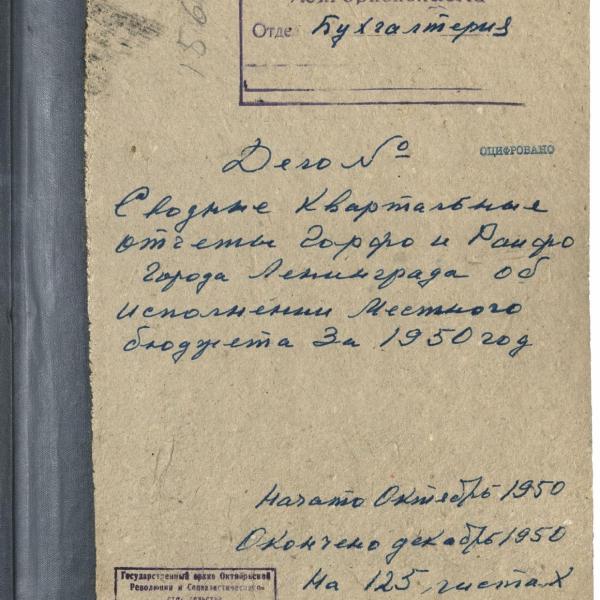 156
Отде Бухгалтерия
Дело №
ОЦИФРОВАНО
Сводные Квартальные
отчеты Горфо и Райфо
Города Ленинграда об
исполнении Местного
бюджета За 1950 год
Начато Октябрь 1950
Окончено декабрь 1950
На 125 листах
Государственный архив Октябрьской
Революции и Социалистического